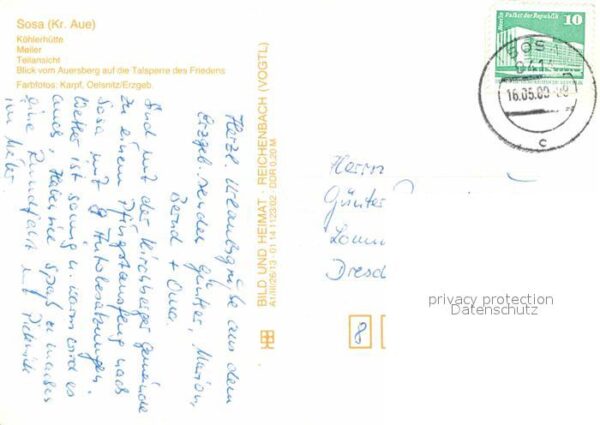 Sosa (Kr. Aue)
Köhlerhütte
Meiler
Teilansicht
Blick vom Auersberg auf die Talsperre des Friedens
Farbfotos: Karpf, Oelsnitz/Erzgeb.
Herzl. Urlaubsgrüße aus dem
Erzgeb. senden Günter, Marion,
Bernd + Oma.
Sind mit der Kirchberger Gemeinde
zu einem Pfingstausflug nach
Sosa mit 8 Autobesatzungen.
Wetter ist sonnig u. warm
Haben viel Spaß
eine Rundfahrt mit Picknick
BILD UND HEIMAT · REICHENBACH (VOGTL)
A1/III/26/13 · 01 14 1123/02 · DDR 0,20 M
Berlin Palast der Republik
10
SOSA
16.05.89
c
Herrn
Günter
Dresd
8
privacy protection
Datenschutz